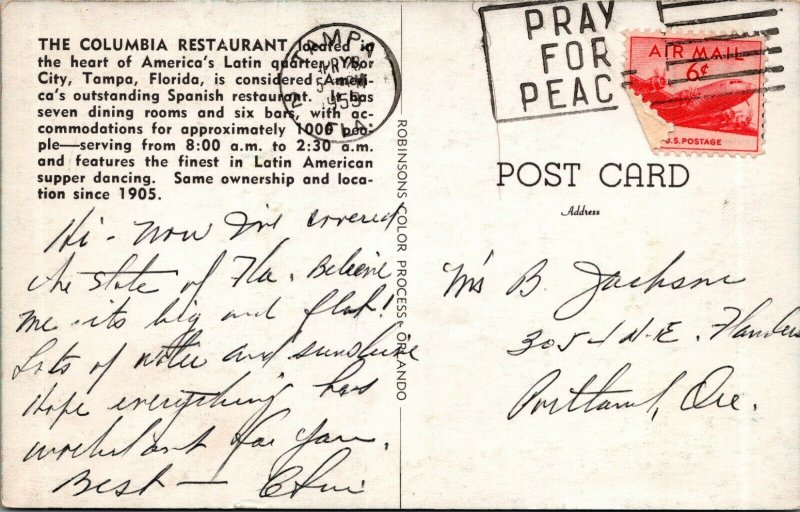 THE COLUMBIA RESTAURANT located in
the heart of America's Latin quarter, Ybor
City, Tampa, Florida, is considered Ameri-
ca's outstanding Spanish restaurant. It has
seven dining rooms and six bars, with ac-
commodations for approximately 1000 peo-
ple—serving from 8:00 a.m. to 2:30 a.m.
and features the finest in Latin American
supper dancing. Same ownership and loca-
tion since 1905.
Hi - Now I've covered
the state of Fla. Believe
me its big and flat!
Lots of water and sunshine
Hope everything has
worked out for you.
Best —
ROBINSONS COLOR PROCESS, ORLANDO
TAMPA
FLA.
PRAY
FOR
PEAC
AIR MAIL
6¢
U.S. POSTAGE
POST CARD
Address
B. Jackson
N.E. Flanders
Portland, Ore.